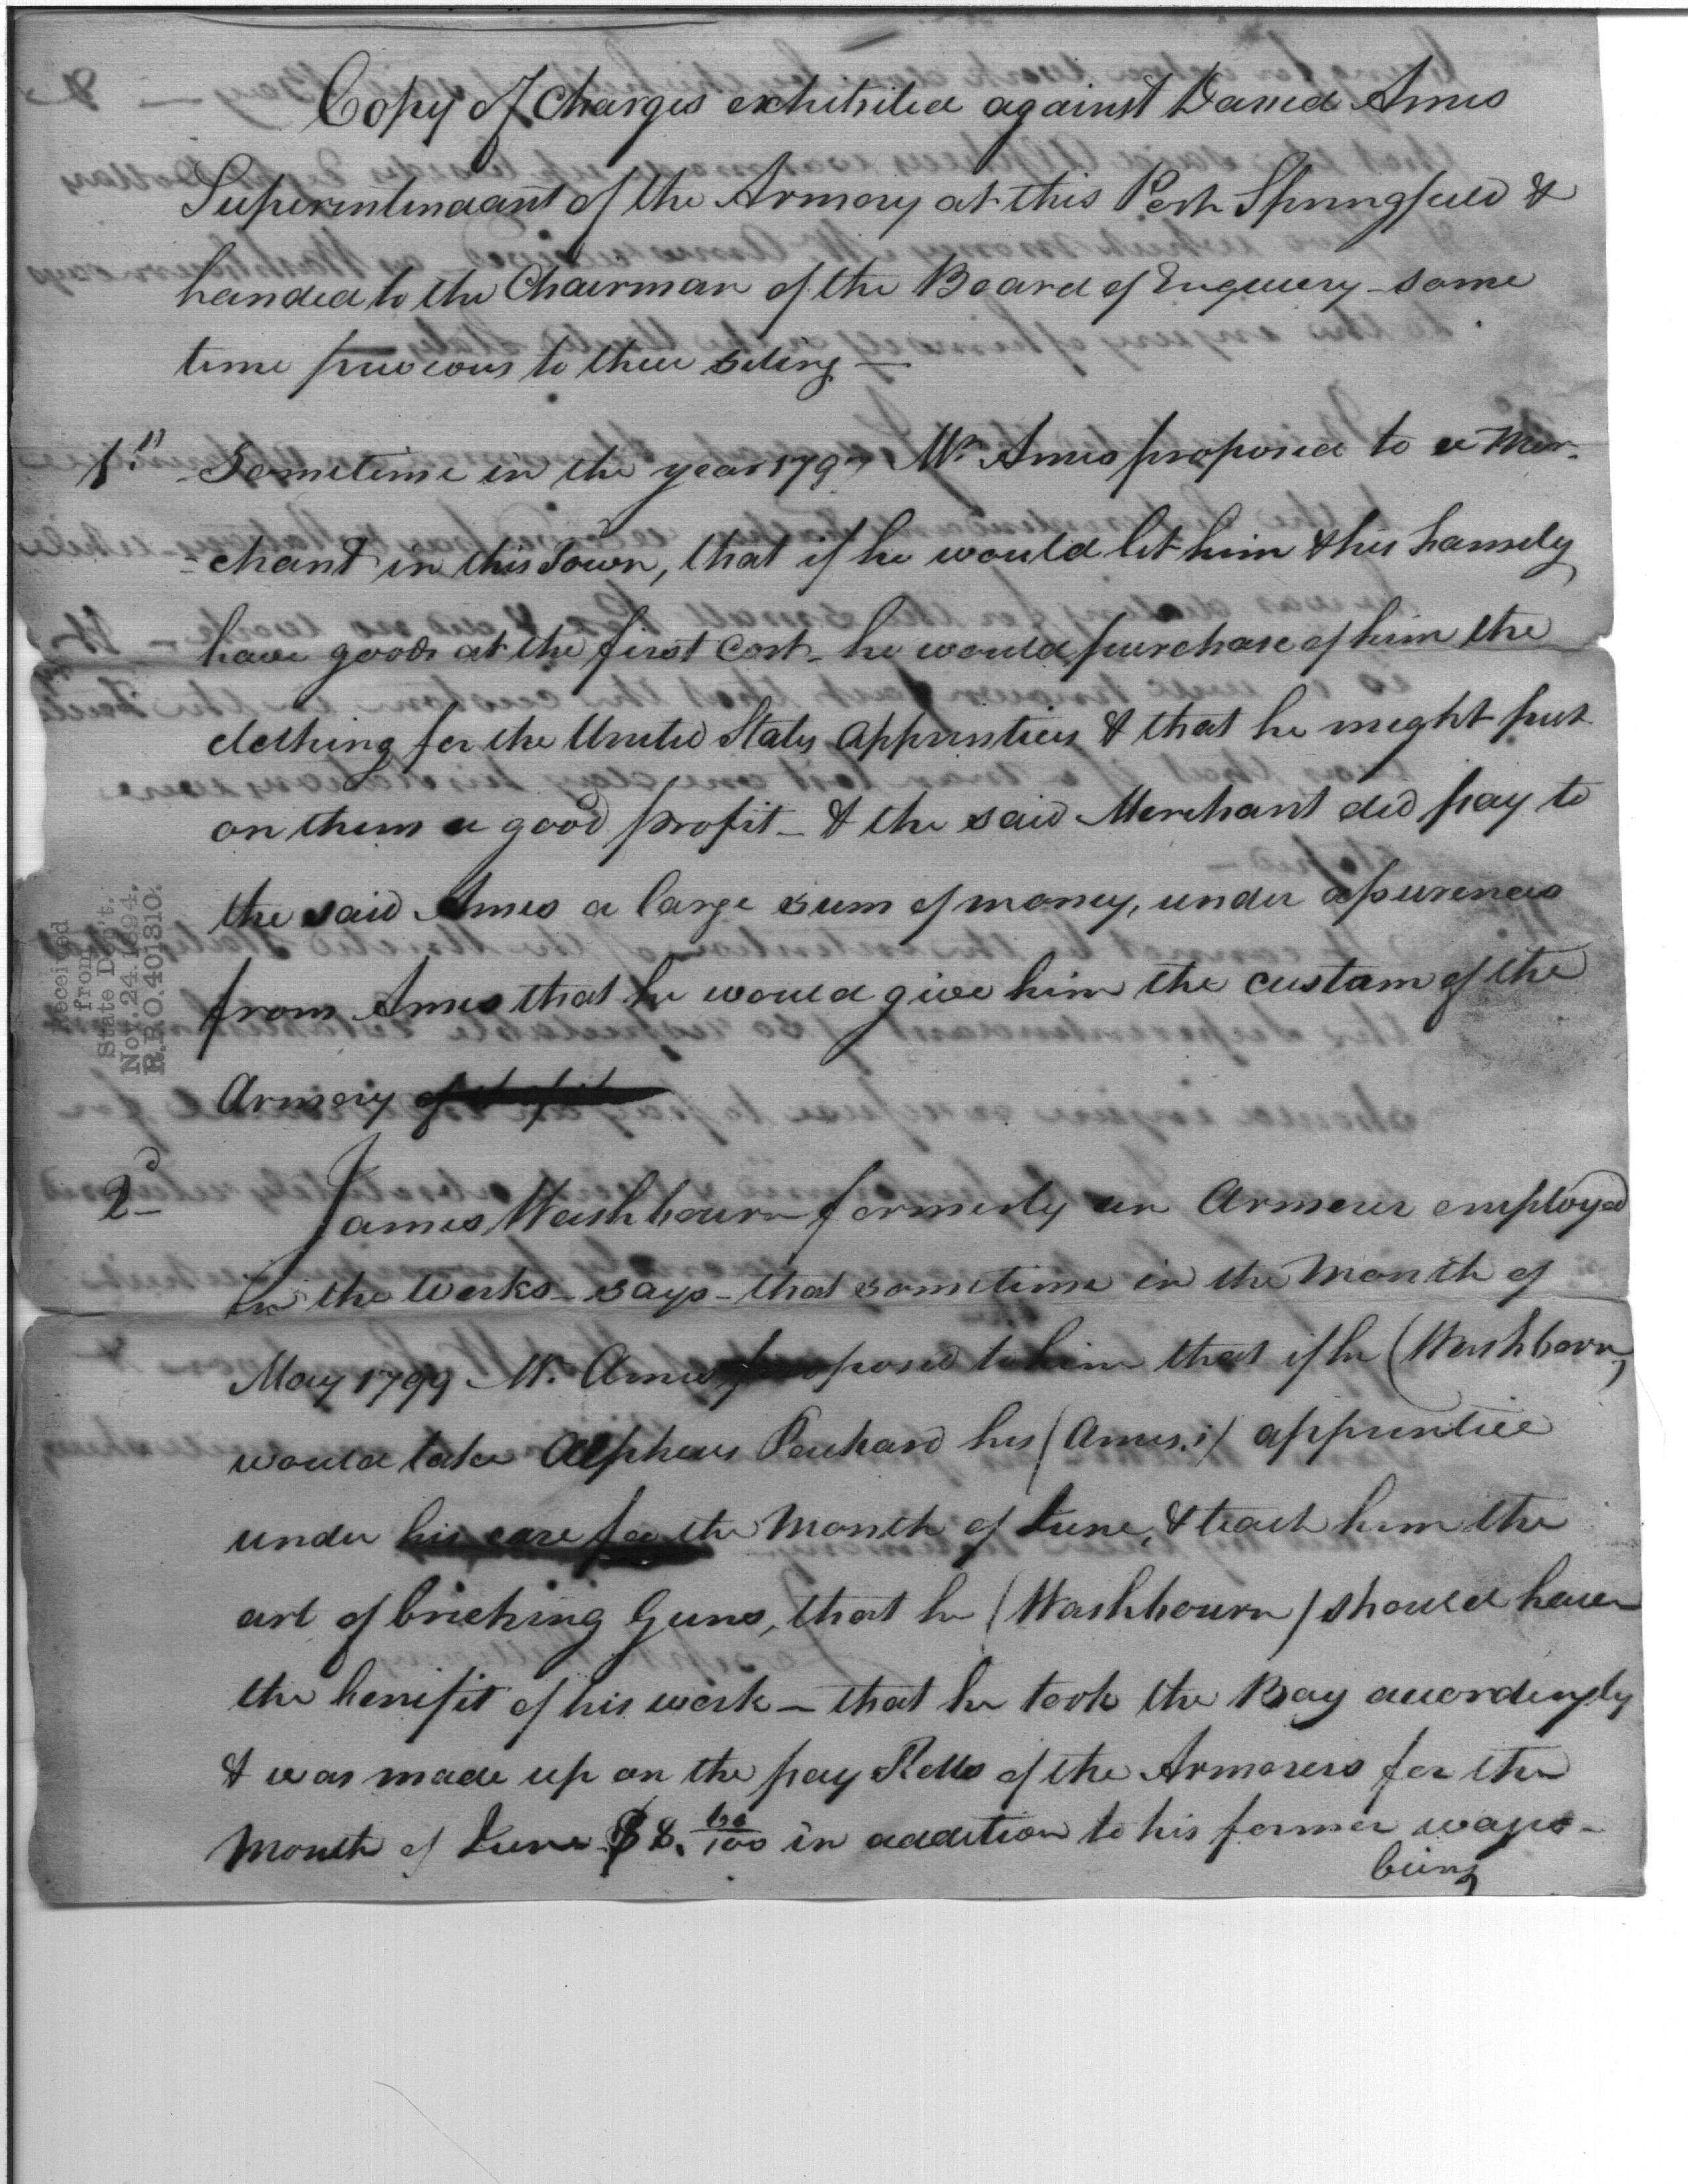 Copy of Charges exhibited against David Ames
Superintendant of the Armory at this Post Springfield &
handed to the Chairman of the Board of Enquiry - some
time previous to their siting —
1st Sometime in the year 1797 Mr Ames proposed to a Mer-
-chant in this Town, that if he would let him & his family
have goods at the first cost - he would purchase of him the
clothing for the United States apprintices & that he might put
on them a good profit - & the said Merchant did pay to
the said Ames a large sum of money, under assurences
from Ames that he would give him the custom of the
Armory
2d James Washbourn formerly an Armorer employed
in the works - says - that sometime in the Month of
May 1799 Mr. Ames proposed to him that if he (Washborn)
would take Alpheus his (Ames.s) apprintice
under his care for the Month of June, & teach him the
art of briching Guns, that he (Washbourn) should have
the benifit of his work - that he took the Boy accordingly
& was made up on the pay Rolls of the Armorers for the
Month of June $8. 60/100 in addition to his former wages -
being
Received
from
State Dep't.
Nov. 24. 1894.
R.P.O. 401310.